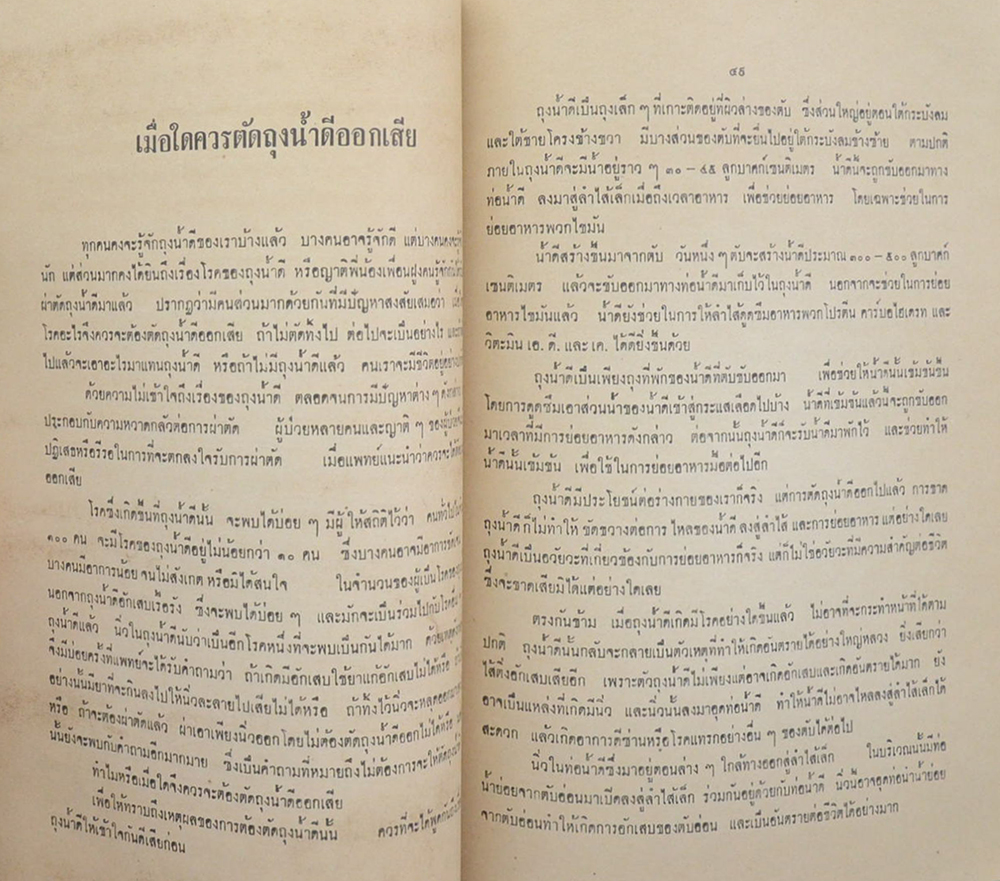 เมื่อใดควรตัดถุงน้ำดีออกเสีย
ทุกคนคงจะรู้จักถุงน้ำดีของเราบ้างแล้ว บางคนอาจรู้จักดี แต่บางคนคงจะ
นัก แต่ส่วนมากคงได้ยินถึงเรื่องโรคของถุงน้ำดี หรือญาติพี่น้องเพื่อนฝูงคนรู้จัก
ผ่าตัดถุงน้ำดีมาแล้ว ปรากฏว่ามีคนส่วนมากด้วยกันที่มีปัญหาสงสัยเสมอว่า
โรคอะไรจึงควรจะต้องตัดถุงน้ำดีออกเสีย ถ้าไม่ตัดทิ้งไป ต่อไปจะเป็นอย่างไร
ไปแล้วจะเอาอะไรมาแทนถุงน้ำดี หรือถ้าไม่มีถุงน้ำดีแล้ว คนเราจะมีชีวิตอยู่
ด้วยความไม่เข้าใจถึงเรื่องของถุงน้ำดี ตลอดจนการมีปัญหาต่าง ๆ
ประกอบกับความหวาดกลัวต่อการผ่าตัด ผู้ป่วยหลายคนและญาติ ๆ ของผู้ป่วย
ปฏิเสธหรือรีรอในการที่จะตกลงใจรับการผ่าตัด เมื่อแพทย์แนะนำว่าควรจะ
ออกเสีย
โรคซึ่งเกิดขึ้นที่ถุงน้ำดีนั้น จะพบได้บ่อย ๆ มีผู้ให้สถิติไว้ว่า คนทั่วไป
๑๐๐ คน จะมีโรคของถุงน้ำดีอยู่ไม่น้อยกว่า ๑๐ คน ซึ่งบางคนอาจมีอาการ
บางคนมีอาการน้อย จนไม่สังเกต หรือมิได้สนใจ ในจำนวนของผู้เป็นโรคของ
นอกจากถุงน้ำดีอักเสบเรื้อรัง ซึ่งจะพบได้บ่อย ๆ และมักจะเป็นร่วมไปกับโรค
ถุงน้ำดีแล้ว นิ่วในถุงน้ำดีนับว่าเป็นอีกโรคหนึ่งที่จะพบเป็นกันได้มาก
จึงมีบ่อยครั้งที่แพทย์จะได้รับคำถามว่า ถ้าเกิดมีอักเสบใช้ยาแก้อักเสบไม่ได้หรือ
อย่างนั้นมียาที่จะกินลงไปให้นิ่วละลายไปเสียไม่ได้หรือ ถ้าทิ้งไว้นิ่วจะหลุดออกมา
หรือ ถ้าจะต้องผ่าตัดแล้ว ผ่าเอาเพียงนิ่วออกโดยไม่ต้องตัดถุงน้ำดีออกไม่ได้หรือ
นั้นยังจะพบกับคำถามอีกมากมาย ซึ่งเป็นคำถามที่หมายถึงไม่ต้องการจะให้ตัดถุงน้ำ
ทำไมหรือเมื่อใดจึงควรจะต้องตัดถุงน้ำดีออกเสีย
เพื่อให้ทราบถึงเหตุผลของการต้องตัดถุงน้ำดีนั้น ควรที่จะได้พูดกันถึง
ถุงน้ำดีให้เข้าใจกันดีเสียก่อน
๔๕
ถุงน้ำดีเป็นถุงเล็ก ๆ ที่เกาะติดอยู่ที่ผิวล่างของตับ ซึ่งส่วนใหญ่อยู่ตอนใต้กระบังลม
และใต้ชายโครงข้างขวา มีบางส่วนของตับที่จะยื่นไปอยู่ใต้กระบังลมข้างซ้าย ตามปกติ
ภายในถุงน้ำดีจะมีน้ำอยู่ราว ๆ ๓๐ – ๔๕ ลูกบาศก์เซนติเมตร น้ำดีนี้จะถูกขับออกมาทาง
ท่อน้ำดี ลงมาสู่ลำไส้เล็กเมื่อถึงเวลาอาหาร เพื่อช่วยย่อยอาหาร โดยเฉพาะช่วยในการ
ย่อยอาหารพวกไขมัน
น้ำดีสร้างขึ้นมาจากตับ วันหนึ่ง ๆ ตับจะสร้างน้ำดีประมาณ ๓๐๐ – ๕๐๐ ลูกบาศก์
เซนติเมตร แล้วจะขับออกมาทางท่อน้ำดีมาเก็บไว้ในถุงน้ำดี นอกจากจะช่วยในการย่อย
อาหารไขมันแล้ว น้ำดียังช่วยในการให้ลำไส้ดูดซึมอาหารพวกโปรตีน คาร์บอไฮเดรท และ
วิตะมิน เอ. ดี. และ เค. ได้ดียิ่งขึ้นด้วย
ถุงน้ำดีเป็นเพียงถุงที่พักของน้ำดีที่ตับขับออกมา เพื่อช่วยให้น้ำดีนั้นเข้มข้นขึ้น
โดยการดูดซึมเอาส่วนน้ำของน้ำดีเข้าสู่กระแสเลือดไปบ้าง น้ำดีที่เข้มข้นแล้วนี้จะถูกขับออก
มาเวลาที่มีการย่อยอาหารดังกล่าว ต่อจากนั้นถุงน้ำดีก็จะรับน้ำดีมาพักไว้ และช่วยทำให้
น้ำดีนั้นเข้มข้น เพื่อใช้ในการย่อยอาหารมื้อต่อไปอีก
ถุงน้ำดีมีประโยชน์ต่อร่างกายของเราก็จริง แต่การตัดถุงน้ำดีออกไปแล้ว การขาด
ถุงน้ำดีก็ไม่ทำให้ ขัดขวางต่อการ ไหลของน้ำดี ลงสู่ลำไส้ และการย่อยอาหาร แต่อย่างใดเลย
ถุงน้ำดีเป็นอวัยวะที่เกี่ยวข้องกับการย่อยอาหารก็จริง แต่ก็ไม่ใช่อวัยวะที่มีความสำคัญต่อชีวิต
ซึ่งจะขาดเสียมิได้แต่อย่างใดเลย
ตรงกันข้าม เมื่อถุงน้ำดีเกิดมีโรคอย่างใดขึ้นแล้ว ไม่อาจที่จะกระทำหน้าที่ได้ตาม
ปกติ ถุงน้ำดีนั้นกลับจะกลายเป็นตัวเหตุที่ทำให้เกิดอันตรายได้อย่างใหญ่หลวง ยิ่งเสียกว่า
ไส้ติ่งอักเสบเสียอีก เพราะตัวถุงน้ำดีไม่เพียงแต่อาจเกิดอักเสบและเกิดอันตรายได้มาก ยัง
อาจเป็นแหล่งที่เกิดมีนิ่ว และนิ่วนั้นลงมาอุดท่อน้ำดี ทำให้น้ำดีไม่อาจไหลลงสู่ลำไส้เล็กได้
สะดวก แล้วเกิดอาการดีซ่านหรือโรคแทรกอย่างอื่น ๆ ของตับได้ต่อไป
นิ่วในท่อน้ำดีซึ่งมาอยู่ตอนล่าง ๆ ใกล้ทางออกสู่ลำไส้เล็ก ในบริเวณนั้นมีท่อ
น้ำย่อยจากตับอ่อนมาเปิดลงสู่ลำไส้เล็ก ร่วมกันอยู่ด้วยกับท่อน้ำดี นิ่วนี้อาจอุดท่อนำน้ำย่อย
จากตับอ่อนทำให้เกิดการอักเสบของตับอ่อน และเป็นอันตรายต่อชีวิตได้อย่างมาก